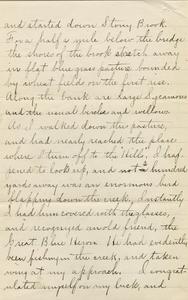 and started down Stony Brook.
For a half a mile below the bridge
the shores of the brook stretch away
in flat bluegrass pasture bounded
by wheat field on the first rise.
Along the bank are large Sycamores
and the usual birches and willows.
As I walked down this pasture,
and had nearly reached the place
where I turn off to the "Hills" I hap-
pened to look up, and not a hundred
yards away was an enormous bird
flapping down the creek. Instantly
I had him covered with the glasses,
and recognized an old friend, the
Great Blue Heron. He had evidently
been fishing in the creek, and taken
wing at my approach. I congrat-
ulated myself on my luck, and